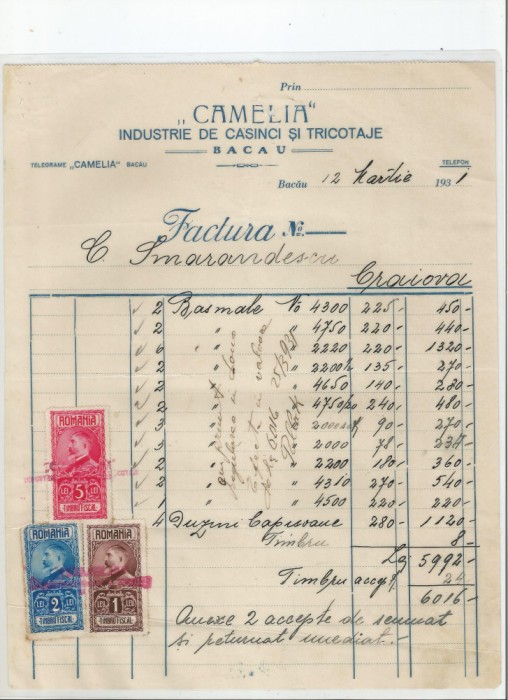 Prin
„CAMELIA"
INDUSTRIE DE CASINCI ȘI TRICOTAJE
BACAU
TELEGRAME „CAMELIA" BACĂU
TELEFON
Bacău 12 Martie 1931
Factura No.
C. Smarandescu
Craiova
2 Basmale No 4300 225- 450-
2 " " 4750 220- 440-
6 " " 2220 220- 1320-
2 " " 2200 135- 270-
2 " " 4650 140- 280-
2 " " 4750/20 240- 480-
3 " 90- 270-
3 " 2000 78- 234-
2 " 2200 180- 360-
2 " 4310 270- 540-
1 " 4500 220- 220-
4 Duzini Capisoane 280- 1120-
Timbru 8-
Lei 5992-
Timbru accept. 24
6016-
Anexe 2 accepte de semnat
și returnat imediat.-
am primit
in doua
efecte in valoare
de lei 6016 25/3 931
ROMANIA
LEI 5 LEI
TIMBRU FISCAL
ROMANIA
LEI 2 LEI
TIMBRU FISCAL
ROMANIA
LEI 1 LEI
TIMBRU FISCAL